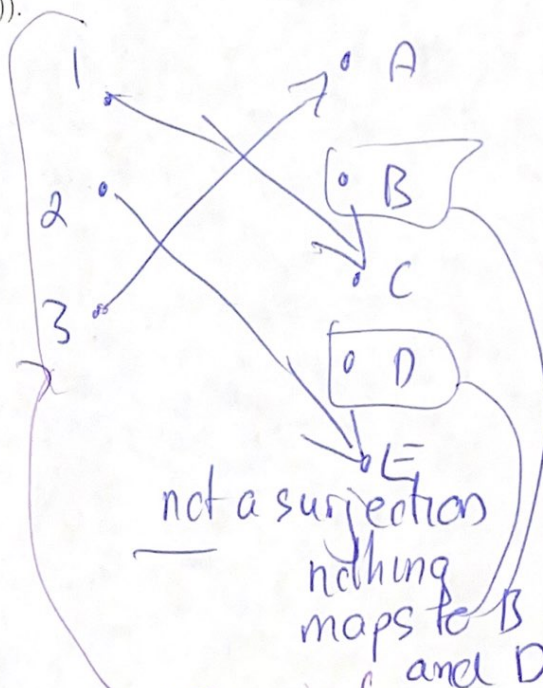 )).
1 A
B
2
C
3
D
E
not a surjection
nothing
maps to B
and D